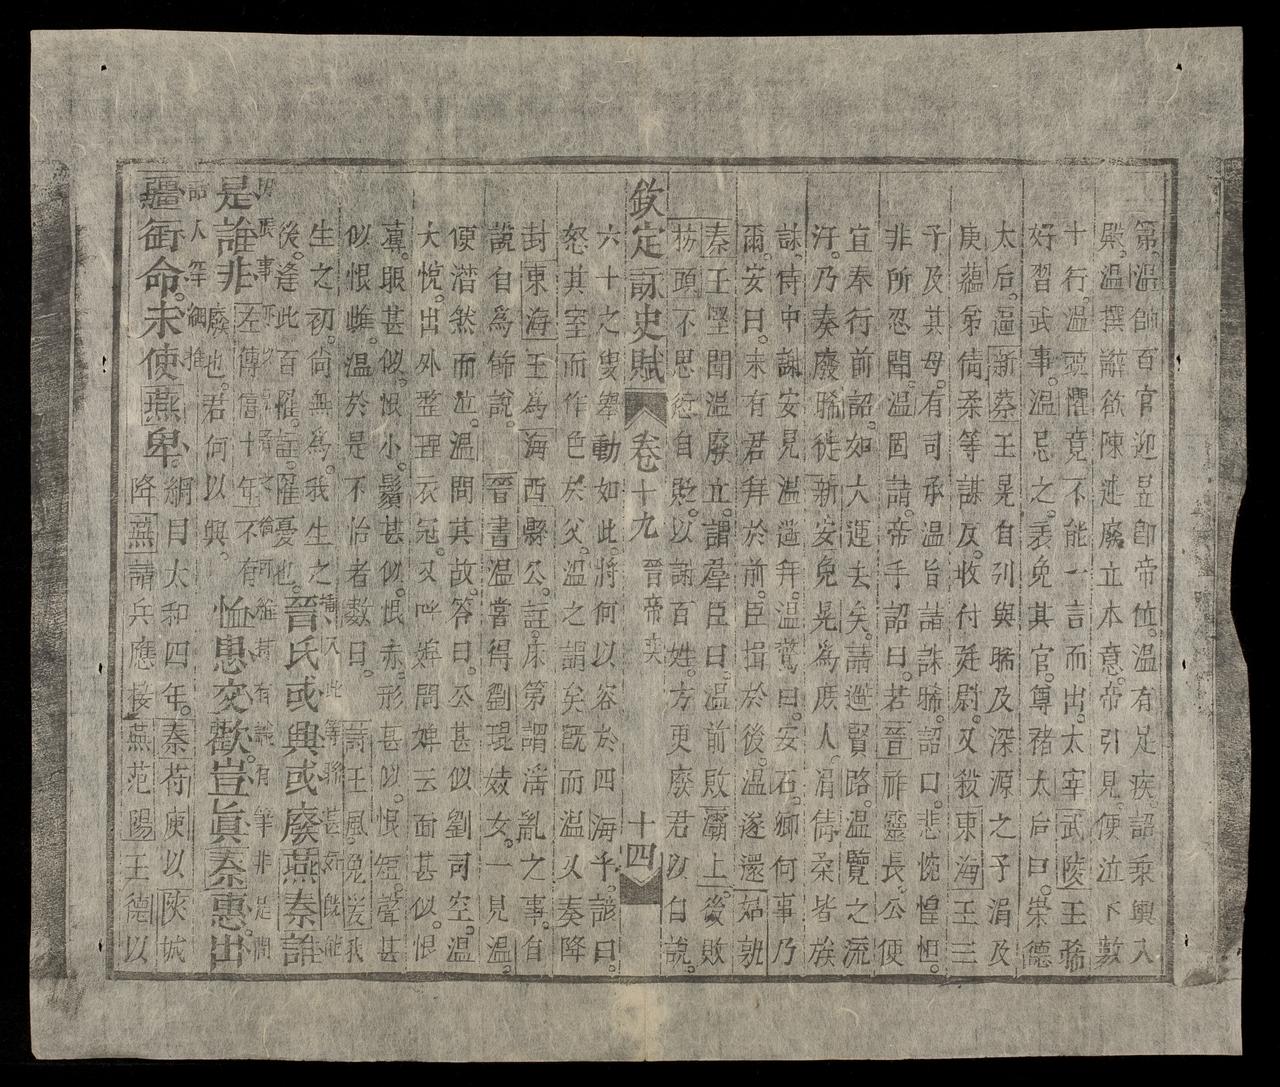 第溫帥百官迎昱卽帝位溫有足疾詔乘輿入
殿溫撰辭欲陳述廢立本意帝引見便泣下數
十行溫兢懼竟不能一言而出太宰武陵王晞
好習武事溫忌之表免其官尊褚太后曰崇德
太后逼新蔡王晃自列與晞及深源之子涓及
庾蘊弟倩柔等謀反收付廷尉又殺東海王三
子及其母有司承溫旨請誅晞詔曰悲惋惶怛
非所忍聞溫固請帝手詔曰若晉祚靈長公便
宜奉行前詔如大運去矣請避賢路溫覽之流
汗乃奏廢晞徙新安免晃爲庶人涓倩柔皆族
誅侍中謝安見溫遙拜溫驚曰安石卿何事乃
爾安曰未有君拜於前臣揖於後溫遂還姑孰
秦王堅聞溫廢立謂羣臣曰溫前敗灞上後敗
枋頭不思愆自貶以謝百姓方更廢君以自說
欽定詠史賦 卷十九 晉帝奕 十四
六十之叟舉動如此將何以容於四海乎諺曰
怒其室而作色於父溫之謂矣旣而溫又奏降
封東海王爲海西縣公註床第謂淫亂之事自
說自爲飾說晉書溫嘗得劉琨妓女一見溫
便潸然而泣溫問其故答曰公甚似劉司空溫
大悅出外整理衣冠又呼婢問婢云面甚似恨
薄眼甚似恨小鬚甚似恨赤形甚似恨短聲甚
似恨雌溫於是不怡者數日詩王風兔爰我
生之初尚無爲我生之
後逢此百罹註罹憂也晉氏或興或廢燕秦誰
是誰非左傳僖十年不有
廢也君何以興恤患交歡豈眞秦惠出
疆銜命未使燕卑綱目太和四年秦苻庾以陝城
降燕請兵應接燕范陽王德以